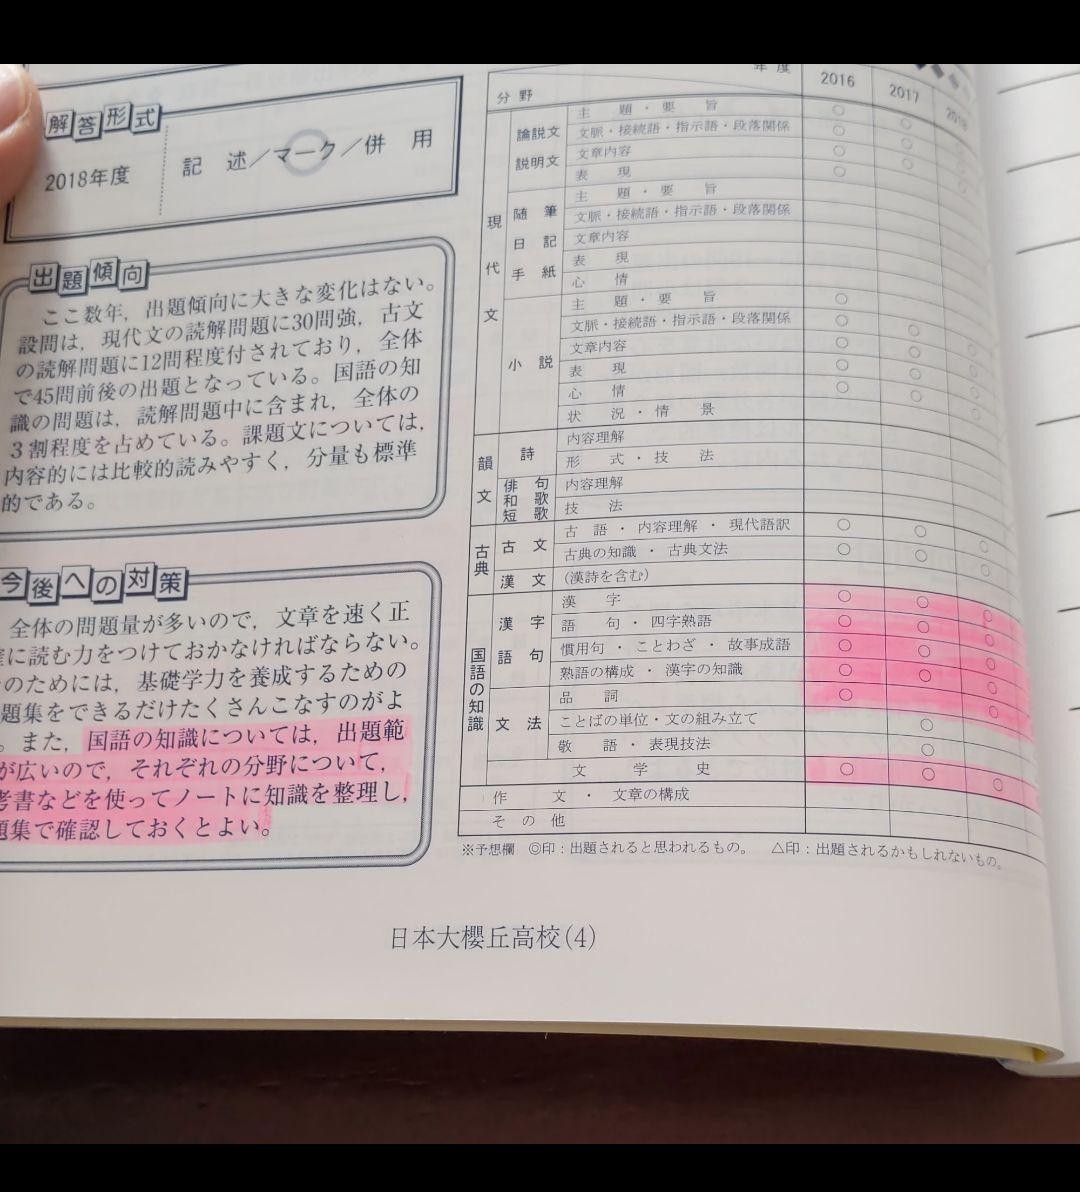 解答形式
2018年度
記述／マーク／併用
出題傾向
ここ数年，出題傾向に大きな変化はない。
設問は，現代文の読解問題に30問強，古文
の読解問題に12問程度付されており，全体
で45問前後の出題となっている。国語の知
識の問題は，読解問題中に含まれ，全体の
3割程度を占めている。課題文については，
内容的には比較的読みやすく，分量も標準
的である。
今後への対策
全体の問題量が多いので，文章を速く正
に読む力をつけておかなければならない。
のためには，基礎学力を養成するための
題集をできるだけたくさんこなすのがよ
。また，国語の知識については，出題範
が広いので，それぞれの分野について，
考書などを使ってノートに知識を整理し，
題集で確認しておくとよい。
分野 年度 2016 2017 2018
現代文
論説文 説明文
主題・要旨 ○ ○
文脈・接続語・指示語・段落関係 ○ ○ ○
文章内容 ○ ○ ○
表現 ○ ○
随筆 日記 手紙
主題・要旨
文脈・接続語・指示語・段落関係
文章内容
表現
心情
小説
主題・要旨 ○
文脈・接続語・指示語・段落関係 ○ ○ ○
文章内容 ○ ○ ○
表現 ○ ○ ○
心情 ○ ○ ○
状況・情景
韻文
詩
内容理解
形式・技法
俳句 和歌 短歌
内容理解
技法
古典
古文
古語・内容理解・現代語訳 ○ ○ ○
古典の知識・古典文法 ○ ○ ○
漢文 （漢詩を含む）
国語の知識
漢字 語句
漢字 ○ ○ ○
語句・四字熟語 ○ ○ ○
慣用句・ことわざ・故事成語 ○ ○ ○
熟語の構成・漢字の知識 ○ ○ ○
文法
品詞 ○ ○
ことばの単位・文の組み立て ○
敬語・表現技法 ○
文学史 ○ ○ ○
作文・文章の構成
その他
※予想欄 ◎印：出題されると思われるもの。 △印：出題されるかもしれないもの。
日本大櫻丘高校（4）